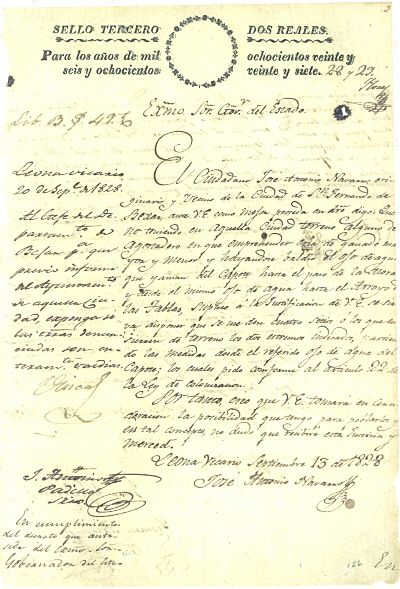 SELLO TERCERO DOS REALES.
Para los años de mil ochocientos veinte y
seis y ochocientos veinte y siete. 28 y 29.
Lib B. 42
Exmo. Sor. Gov.r del Estado.
Leona vicario
20 de Sep.e de 1828.
Al Gefe del De
partam.to de
Bexar p.a que
previo informe
del Ayuntamiento
de aquella Ciu
dad, exponga si
las tierras denun
ciadas son en
teram.te valdias.
El Ciudadano Jose Antonio Navarro ori
ginario y Vecino de la Ciudad de Sn. Fernando de
Bexar, ante V.E. como mejor proceda en dro. digo: Que
no teniendo en Aquella Ciudad terreno alguno de
Agostadero en que emprender cria de ganado ma
yor y menor, y
que llaman del Capote hasta el paso de la
y desde el mismo ojo de agua hasta el Arroyo d
las Tablas, Suplico á la Justificacion de V.E. se sir
va disponer que se me den cuatro sitios ó los que
de terreno los dos extremos indicados,
de las medidas desde el referido ojo de agua del
Capote; los cuales pido conforme al articulo 24 de
la Ley de colonizacion.
Por tanto, creo que V.E. tomará en Con
sideracion la posibilidad que tengo para poblarlos y
en tal concepto, no dudo que recibiré esta Justicia y
Merced.
Leona Vicario Septiembre 13 de 1828
Jose Antonio Navarro
J. Antonio
Padilla
Srio.
En cumplimiento
del decreto que ante
sede del Exmo. Sor.
Gobernador del
156
En